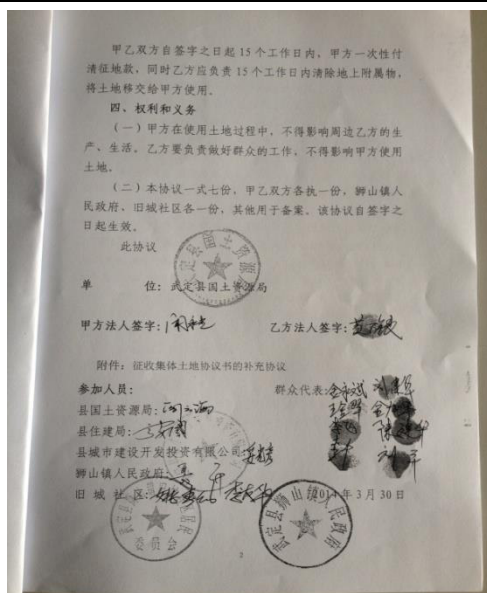 甲乙双方自签字之日起15个工作日内，甲方一次性付
清征地款，同时乙方应负责15个工作日内清除地上附属物，
将土地移交给甲方使用。
四、权利和义务
（一）甲方在使用土地过程中，不得影响周边乙方的生
产、生活。乙方要负责做好群众的工作，不得影响甲方使用
土地。
（二）本协议一式七份，甲乙双方各执一份，狮山镇人
民政府、旧城社区各一份，其他用于备案。该协议自签字之
日起生效。
此协议
武定县国土资源局
单 位：武定县国土资源局
甲方法人签字：
乙方法人签字：
附件：征收集体土地协议书的补充协议
参加人员：
群众代表：
县国土资源局：
县住建局：
县城市建设开发投资有限公司
狮山镇人民政府：
旧城社区：
2014年3月30日
委员会
武定县狮山镇人民政府
2